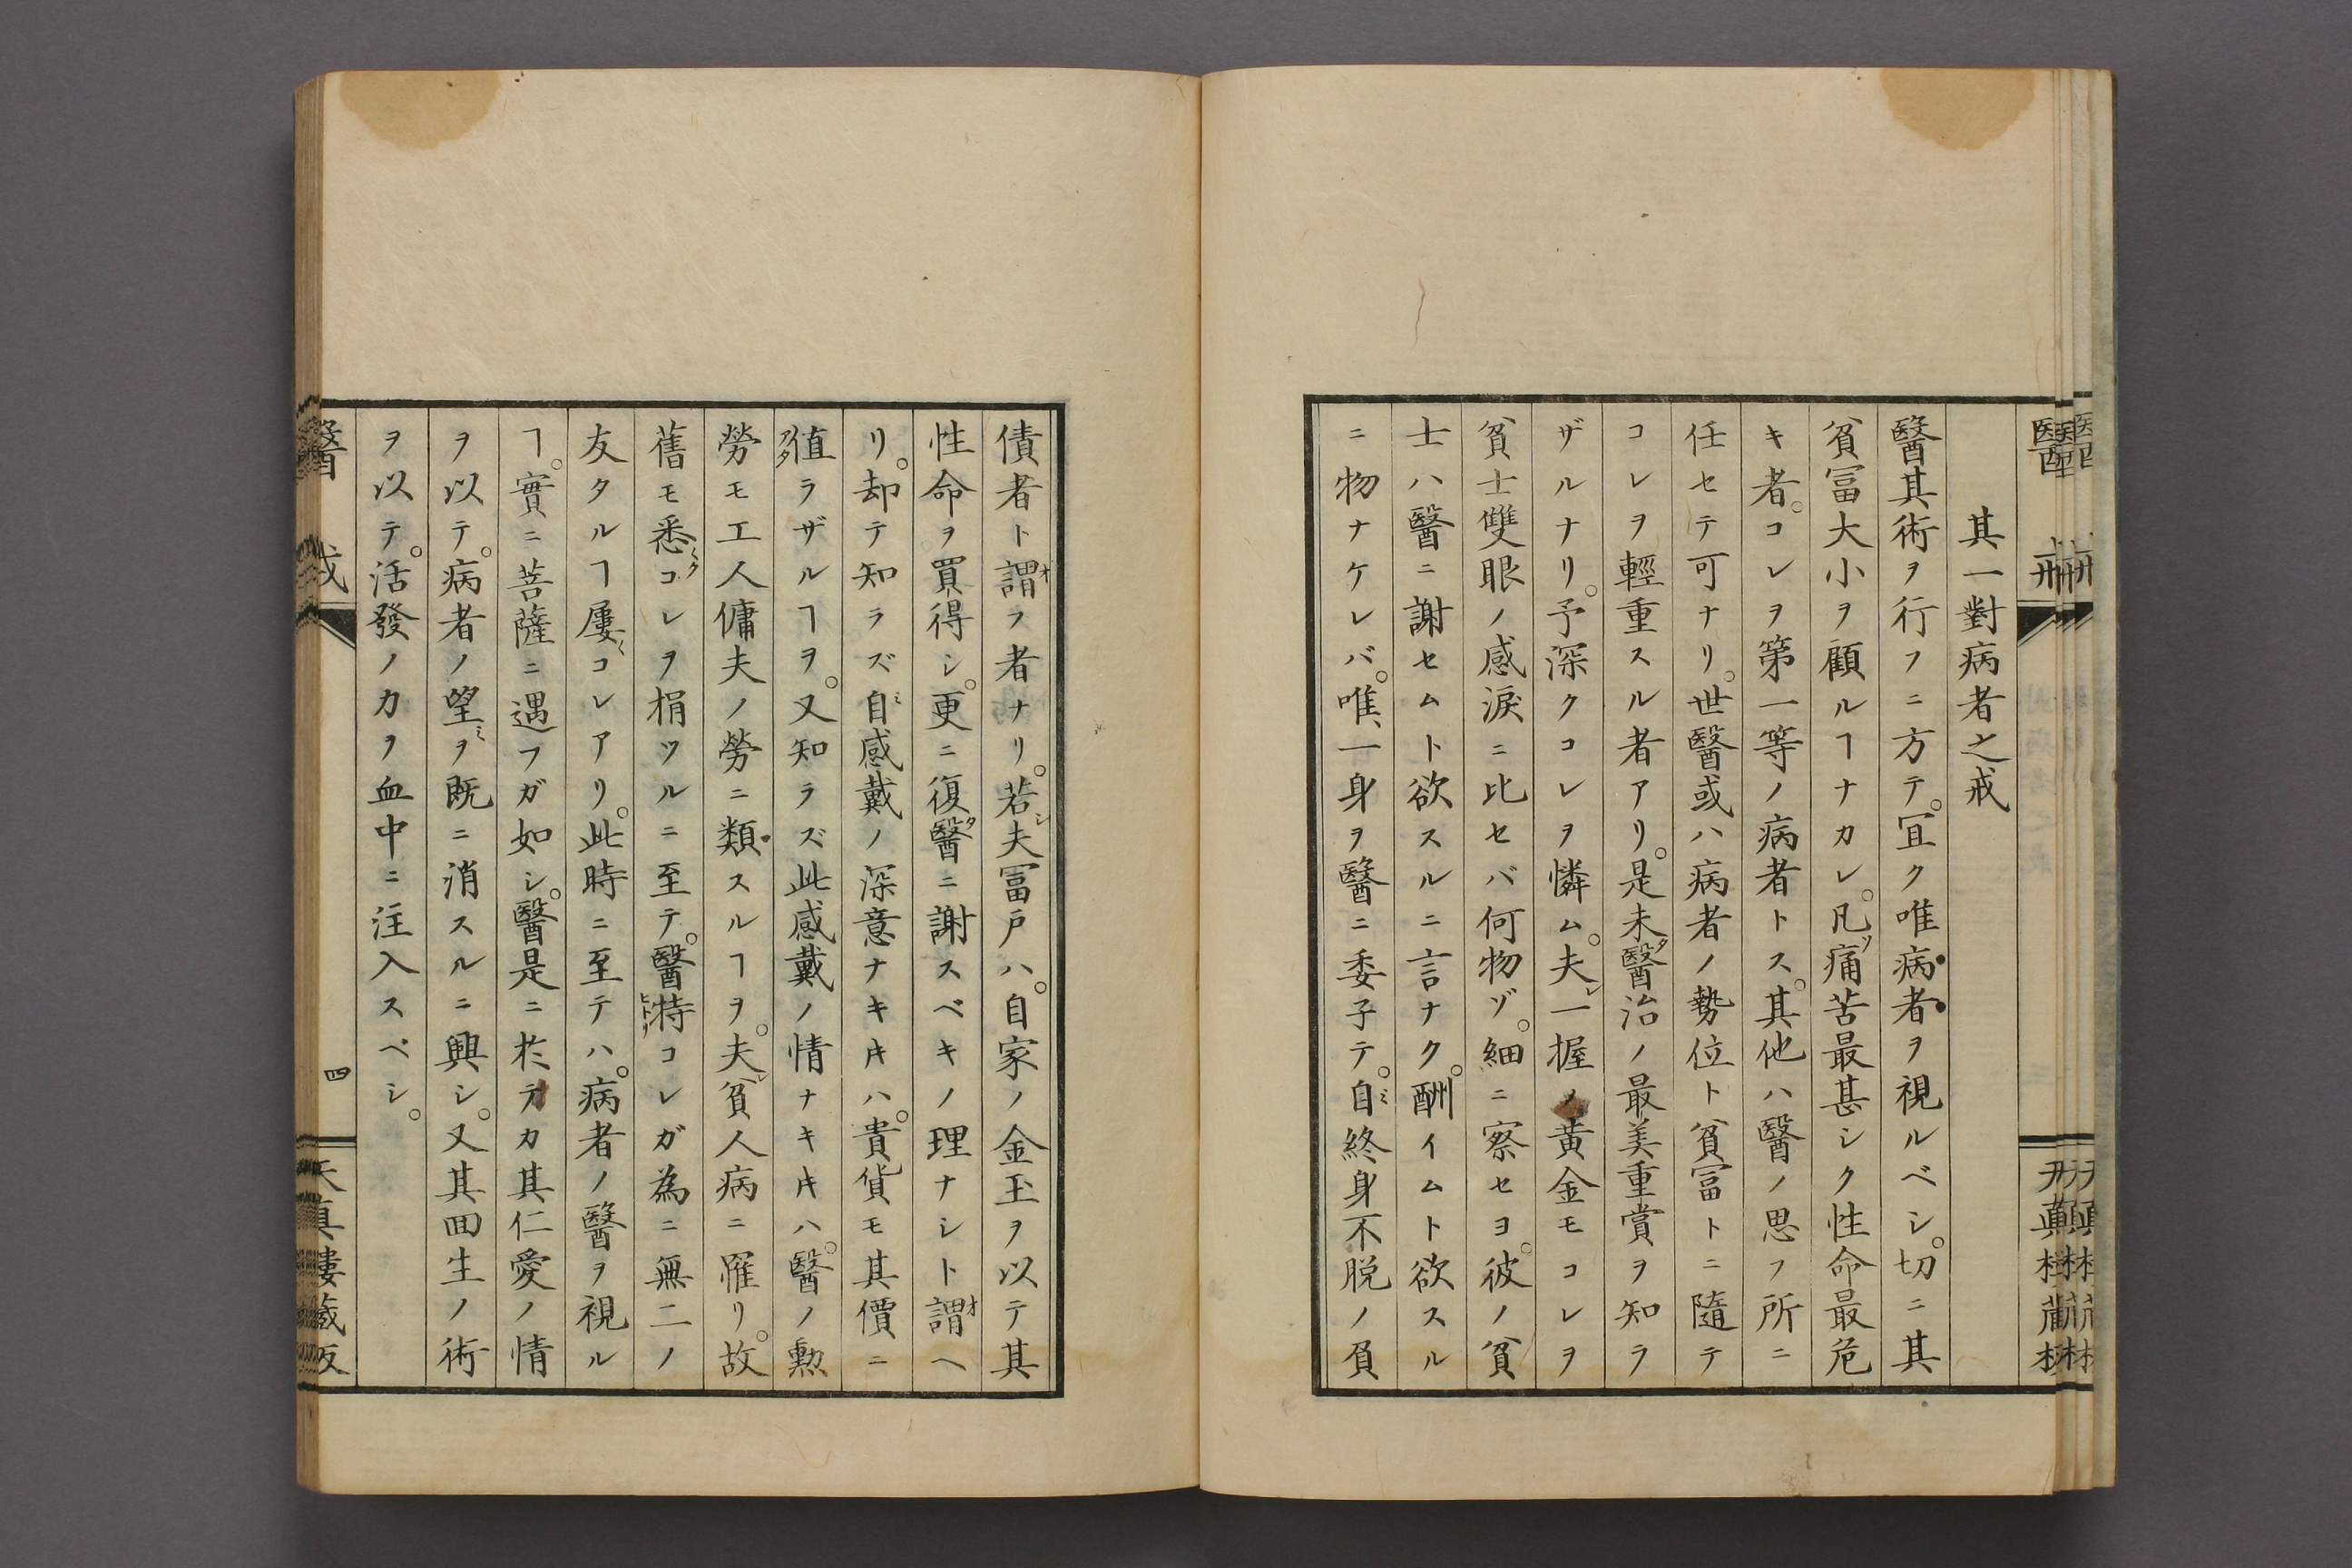 其一對病者之戒
醫其術ヲ行フニ方テ。冝ク唯病者ヲ視ルベシ。切ニ其
貧冨大小ヲ顧ルヿナカレ。凡ソ痛苦最甚シク性命最危
キ者。コレヲ第一等ノ病者トス。其他ハ醫ノ思フ所ニ
任セテ可ナリ。世醫或ハ病者ノ勢位ト貧冨トニ隨テ
コレヲ輕重スル者アリ。是未タ醫治ノ最美重賞ヲ知ラ
ザルナリ。予深クコレヲ憐ム。夫レ一握ノ黄金モコレヲ
貧士雙眼ノ感淚ニ比セバ何物ゾ。細ニ察セヨ。彼ノ貧
士ハ醫ニ謝セムト欲スルニ言ナク。酬イムト欲スル
ニ物ナケレバ。唯、一身ヲ醫ニ委子テ。自ミ終身不脱ノ負
債者ト謂オフ者ナリ。若シ夫冨戸ハ。自家ノ金玉ヲ以テ其
性命ヲ買得シ。更ニ復タ醫ニ謝スベキノ理ナシト謂オヘ
リ。却テ知ラズ自ミ感戴ノ深意ナキ𪜈ハ。貴貨モ其價ニ
値アタラザルヿヲ。又知ラズ此感戴ノ情ナキ𪜈ハ。醫ノ勲
勞モ工人傭夫ノ勞ニ類スルヿヲ。夫レ貧人病ニ罹リ。故
舊モ悉〱クコレヲ捐ツルニ至テ。醫特ヒトリコレガ為ニ無二ノ
友タルヿ屢〱コレアリ。此時ニ至テハ。病者ノ醫ヲ視ル
ヿ。實ニ菩薩ニ遇フガ如シ。醫是ニ於テカ其仁愛ノ情
ヲ以テ。病者ノ望ミヲ既ニ消スルニ興シ。又其回生ノ術
ヲ以テ。活發ノ力ヲ血中ニ注入スベシ。
醫戒
四
天真樓藏版